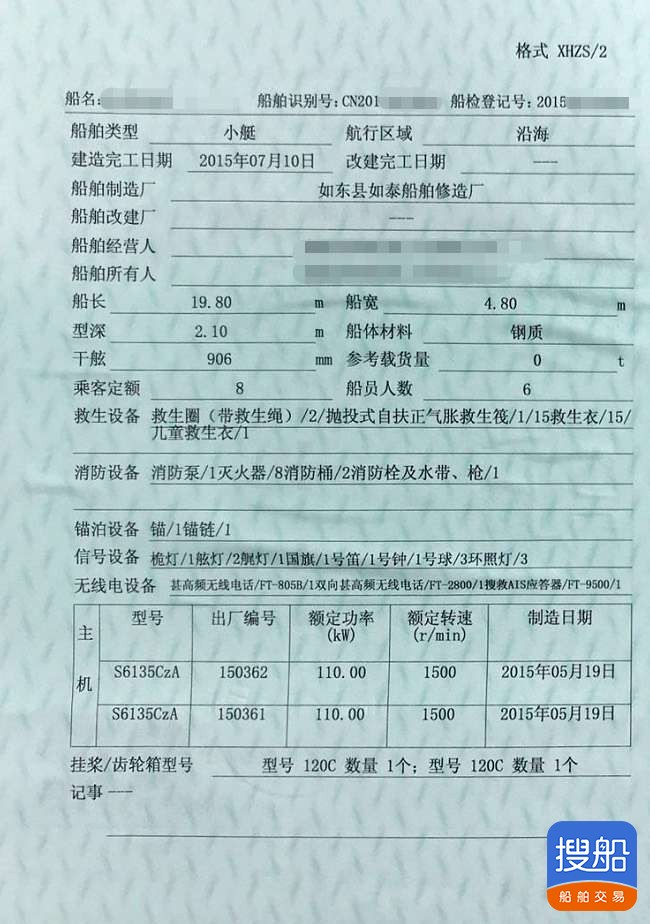 格式 XHZS/2
船名: 船舶识别号:CN201 船检登记号:2015
船舶类型 小艇 航行区域 沿海
建造完工日期 2015年07月10日 改建完工日期 ---
船舶制造厂 如东县如泰船舶修造厂
船舶改建厂 ---
船舶经营人
船舶所有人
船长 19.80 m 船宽 4.80 m
型深 2.10 m 船体材料 钢质
干舷 906 mm 参考载货量 0 t
乘客定额 8 船员人数 6
救生设备 救生圈（带救生绳）/2/抛投式自扶正气胀救生筏/1/15救生衣/15/
儿童救生衣/1
消防设备 消防泵/1灭火器/8消防桶/2消防栓及水带、枪/1
锚泊设备 锚/1锚链/1
信号设备 桅灯/1舷灯/2艉灯/1国旗/1号笛/1号钟/1号球/3环照灯/3
无线电设备 甚高频无线电话/FT-805B/1双向甚高频无线电话/FT-2800/1搜救AIS应答器/FT-9500/1
主机 型号 出厂编号 额定功率 额定转速 制造日期
(kW) (r/min)
S6135CzA 150362 110.00 1500 2015年05月19日
S6135CzA 150361 110.00 1500 2015年05月19日
挂桨/齿轮箱型号 型号 120C 数量 1个; 型号 120C 数量 1个
记事 ---
搜船
船舶交易